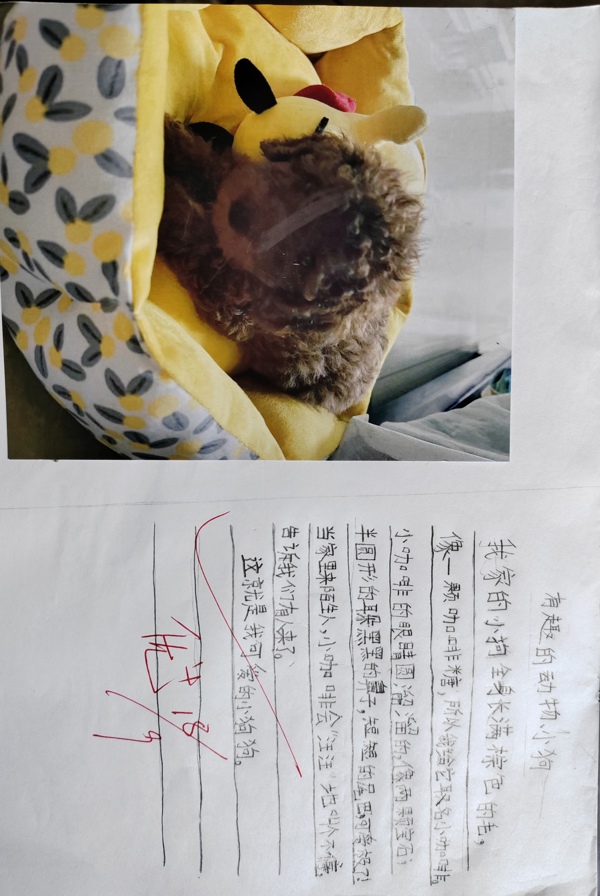 有趣的动物小狗
我家的小狗全身长满棕色的毛。
像一颗咖啡糖,所以我给它取名小咖啡。
小咖啡的眼睛圆溜溜的,像两颗宝石;
半圆形的耳朵,黑黑的鼻子,短短的尾巴,可爱极了!
当家里来陌生人,小咖啡会“汪汪”地叫个不停,
告诉我们有人来了。
这就是我可爱的小狗狗。
优+ 18/9